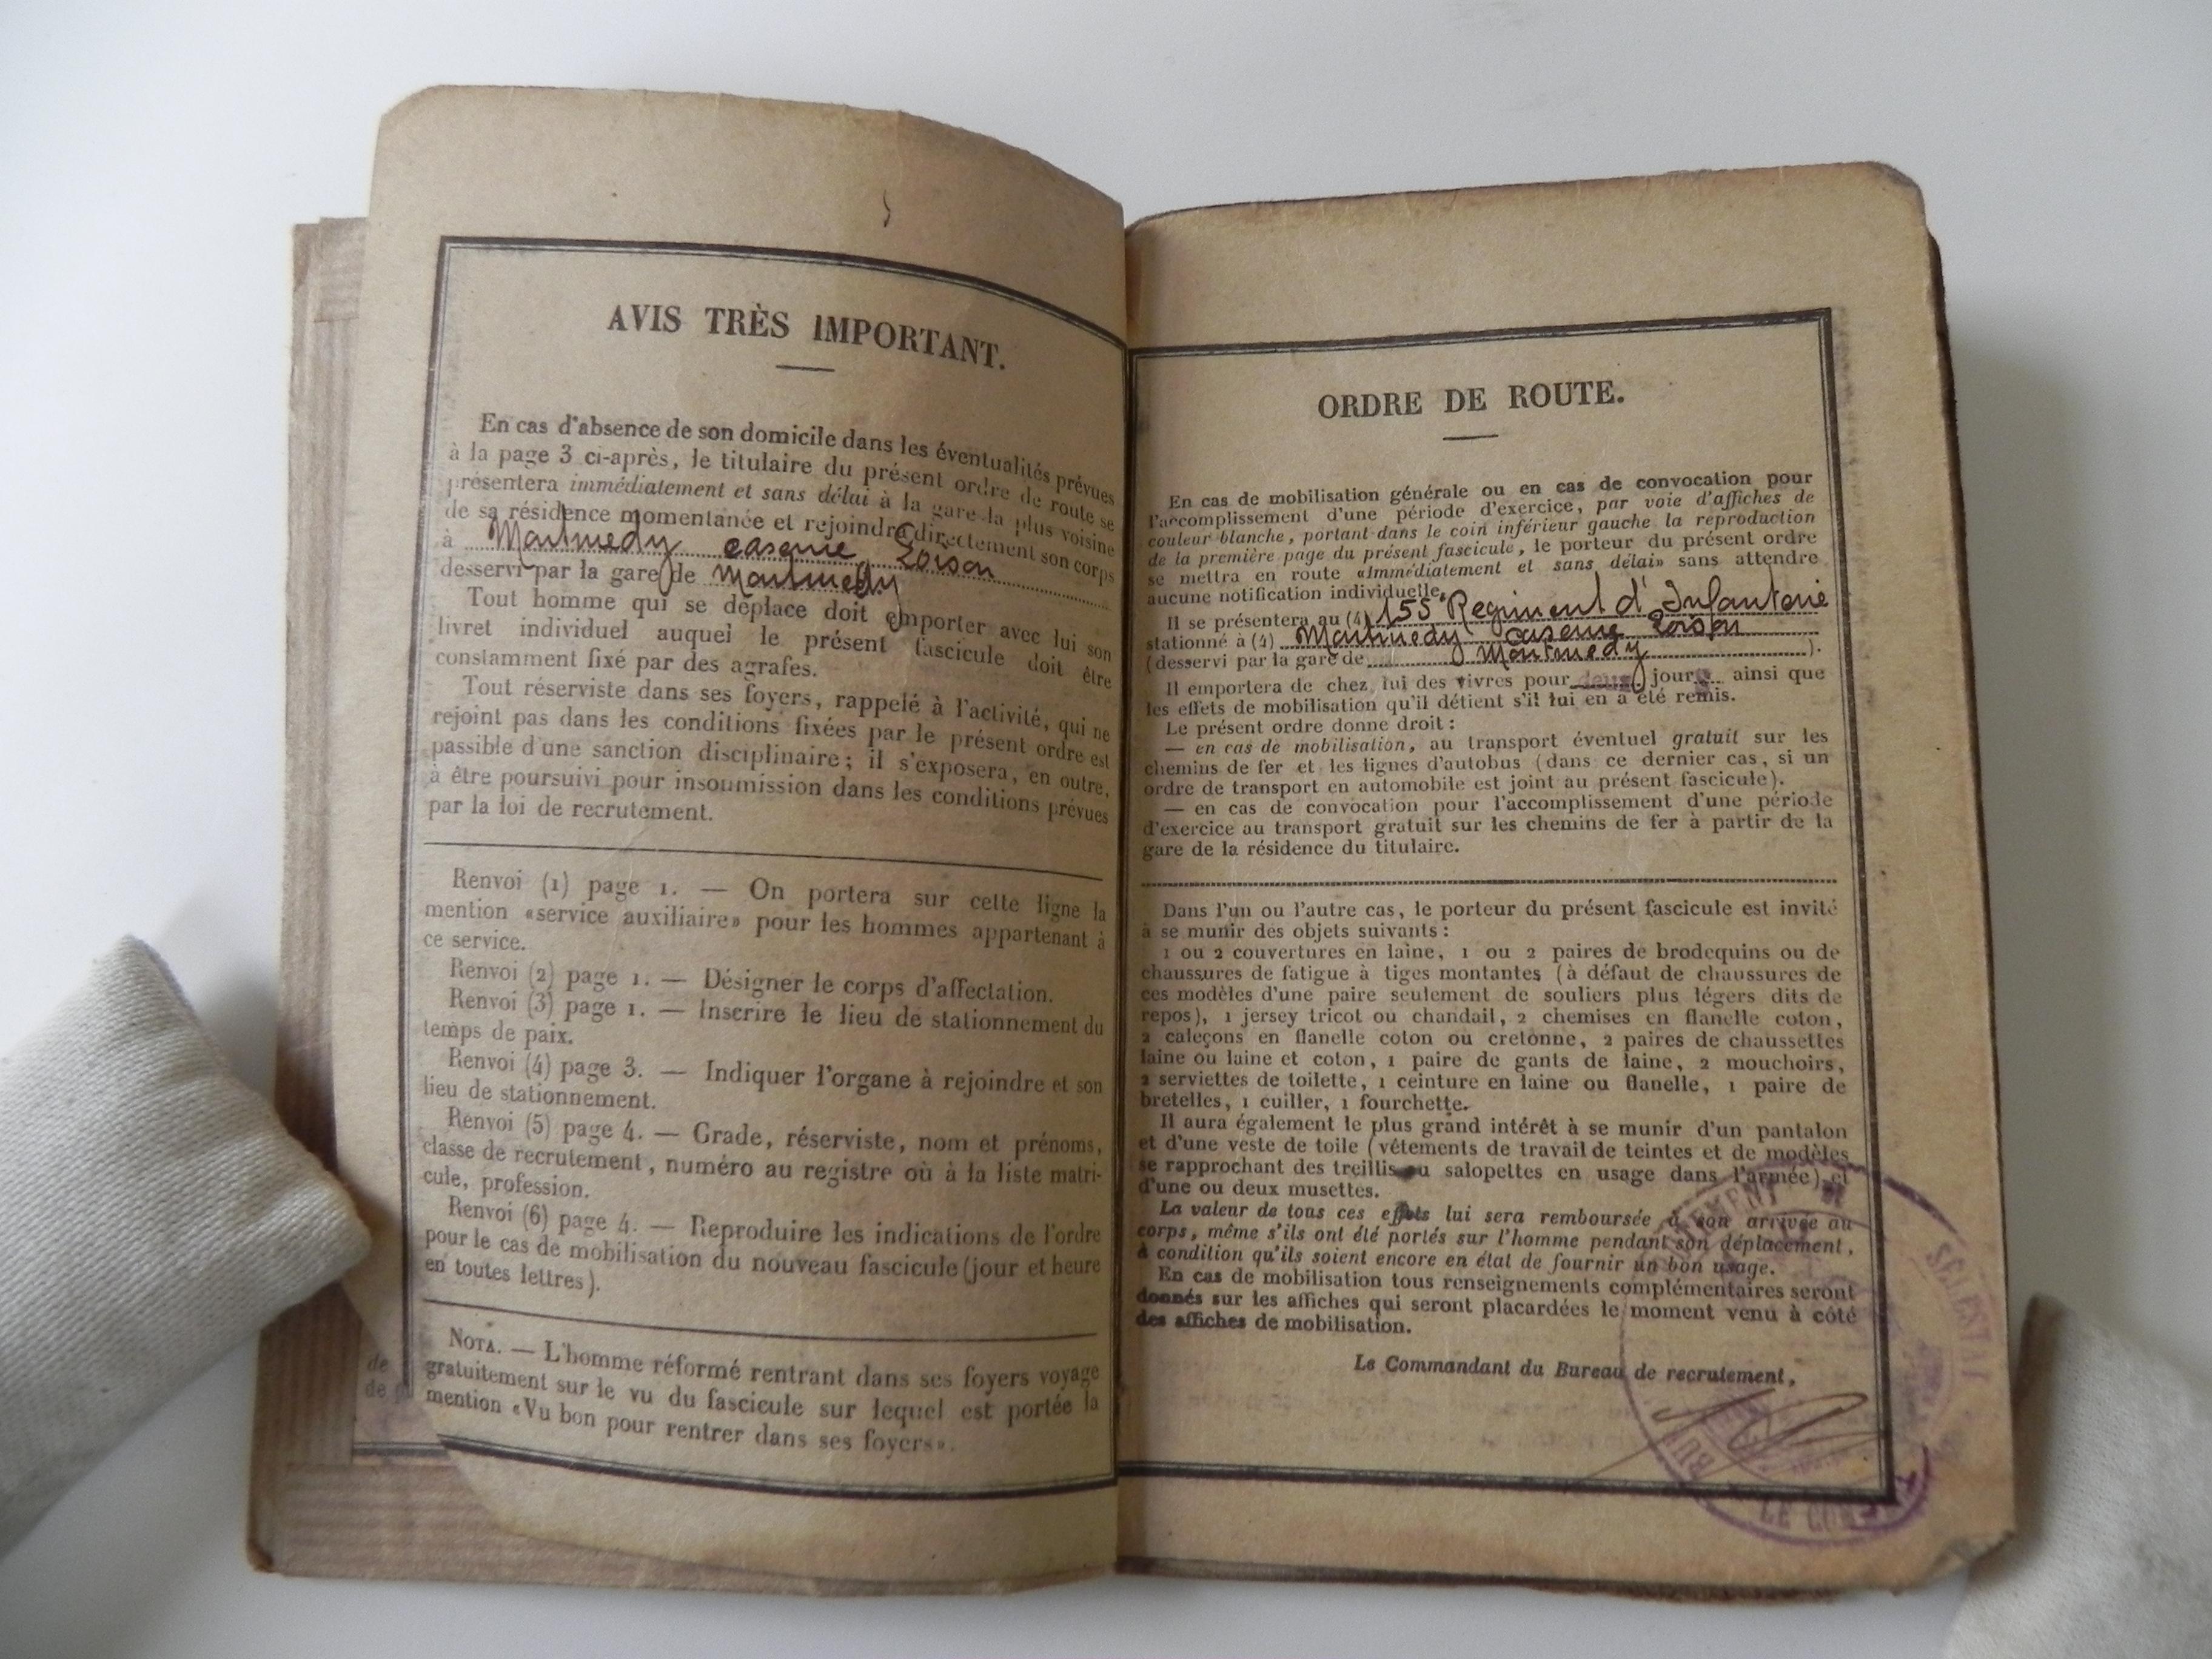 AVIS TRÈS IMPORTANT.
En cas d'absence de son domicile dans les éventualités prévues
à la page 3 ci-après, le titulaire du présent ordre de route se
présentera immédiatement et sans délai à la gare la plus voisine
de sa résidence momentanée et rejoindra directement son corps
à Montmedy caserne Loison
desservi par la gare de Montmedy
Tout homme qui se déplace doit emporter avec lui son
livret individuel auquel le présent fascicule doit être
constamment fixé par des agrafes.
Tout réserviste dans ses foyers, rappelé à l'activité, qui ne
rejoint pas dans les conditions fixées par le présent ordre est
passible d'une sanction disciplinaire; il s'exposera, en outre,
à être poursuivi pour insoumission dans les conditions prévues
par la loi de recrutement.
Renvoi (1) page 1. — On portera sur cette ligne la
mention «service auxiliaire» pour les hommes appartenant à
ce service.
Renvoi (2) page 1. — Désigner le corps d'affectation.
Renvoi (3) page 1. — Inscrire le lieu de stationnement du
temps de paix.
Renvoi (4) page 3. — Indiquer l'organe à rejoindre et son
lieu de stationnement.
Renvoi (5) page 4. — Grade, réserviste, nom et prénoms,
classe de recrutement, numéro au registre où à la liste matri-
cule, profession.
Renvoi (6) page 4. — Reproduire les indications de l'ordre
pour le cas de mobilisation du nouveau fascicule (jour et heure
en toutes lettres).
NOTA. — L'homme réformé rentrant dans ses foyers voyage
gratuitement sur le vu du fascicule sur lequel est portée la
mention «Vu bon pour rentrer dans ses foyers».
de
de
ORDRE DE ROUTE.
En cas de mobilisation générale ou en cas de convocation pour
l'accomplissement d'une période d'exercice, par voie d'affiches de
couleur blanche, portant dans le coin inférieur gauche la reproduction
de la première page du présent fascicule, le porteur du présent ordre
se mettra en route «immédiatement et sans délai» sans attendre
aucune notification individuelle.
Il se présentera au (4) 155 Regiment d'Infanterie
stationné à (4) Montmedy caserne Loison
(desservi par la gare de Montmedy ).
Il emportera de chez lui des vivres pour deux jours ainsi que
les effets de mobilisation qu'il détient s'il lui en a été remis.
Le présent ordre donne droit :
— en cas de mobilisation, au transport éventuel gratuit sur les
chemins de fer et les lignes d'autobus (dans ce dernier cas, si un
ordre de transport en automobile est joint au présent fascicule).
— en cas de convocation pour l'accomplissement d'une période
d'exercice au transport gratuit sur les chemins de fer à partir de la
gare de la résidence du titulaire.
Dans l'un ou l'autre cas, le porteur du présent fascicule est invité
à se munir des objets suivants :
1 ou 2 couvertures en laine, 1 ou 2 paires de brodequins ou de
chaussures de fatigue à tiges montantes (à défaut de chaussures de
ces modèles d'une paire seulement de souliers plus légers dits de
repos), 1 jersey tricot ou chandail, 2 chemises en flanelle coton,
2 caleçons en flanelle coton ou cretonne, 2 paires de chaussettes
laine ou laine et coton, 1 paire de gants de laine, 2 mouchoirs,
2 serviettes de toilette, 1 ceinture en laine ou flanelle, 1 paire de
bretelles, 1 cuiller, 1 fourchette.
Il aura également le plus grand intérêt à se munir d'un pantalon
et d'une veste de toile (vêtements de travail de teintes et de modèles
se rapprochant des treillis ou salopettes en usage dans l'armée) et
d'une ou deux musettes.
La valeur de tous ces effets lui sera remboursée à son arrivée au
corps, même s'ils ont été portés sur l'homme pendant son déplacement,
à condition qu'ils soient encore en état de fournir un bon usage.
En cas de mobilisation tous renseignements complémentaires seront
donnés sur les affiches qui seront placardées le moment venu à côté
des affiches de mobilisation.
Le Commandant du Bureau de recrutement,